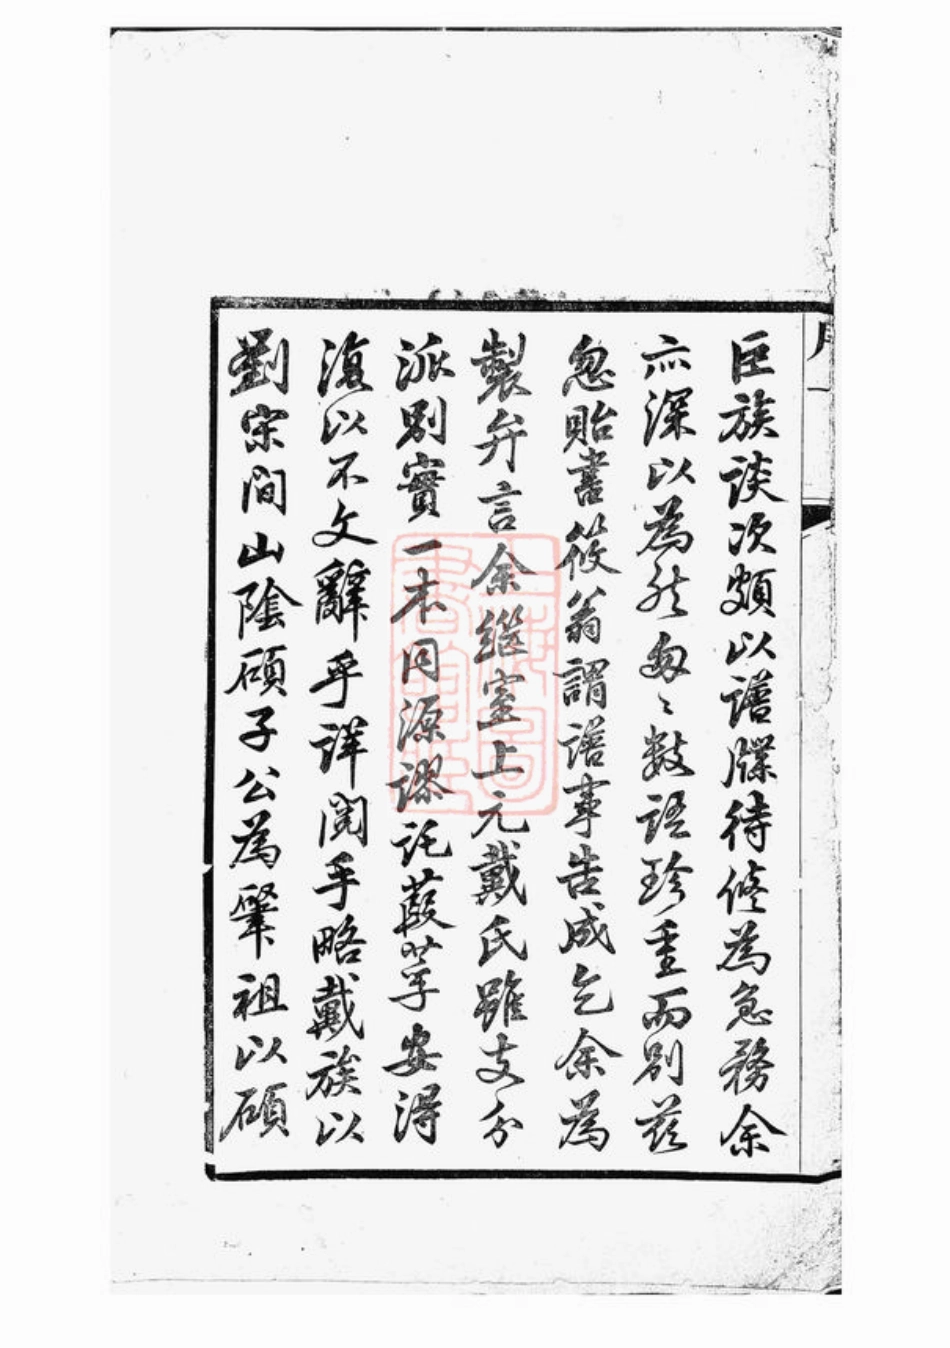 巨族談次頗以譜牒待修為急務余
亦深以為然匆匆數語珍重而別茲
忽貽書筱翁謂譜事告成乞余為
製弁言余繼室上元戴氏雖支分
派別實一本同源謬託葭莩安得
復以不文辭乎詳閱乎略戴族以
劉宋間山陰碩子公為肇祖以碩